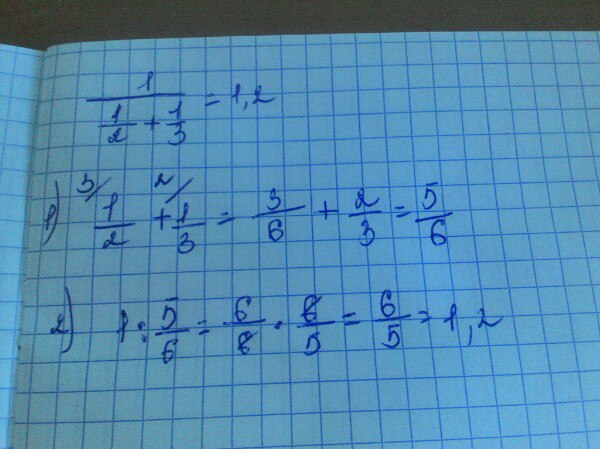 1/(1/2 + 1/3) = 1,2
1) 3/ 1/2 + 2/ 1/3 = 3/6 + 2/3 = 5/6
2) 1 : 5/6 = 6/6 · 6/5 = 6/5 = 1,2